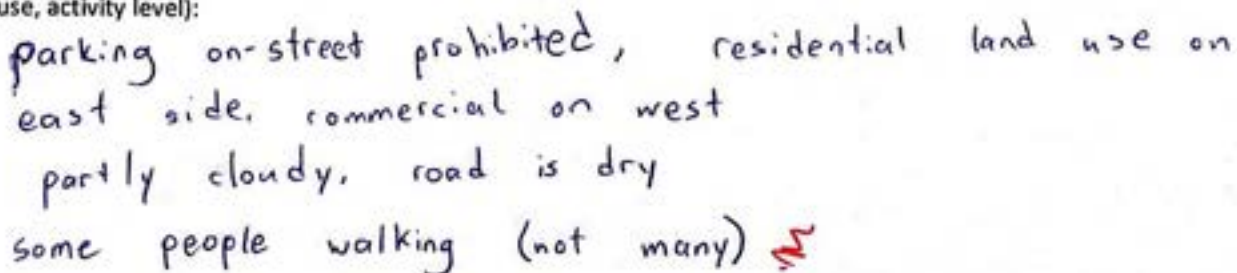 use, activity level):
parking on-street prohibited, residential land use on
east side, commercial on west
partly cloudy, road is dry
some people walking (not many)